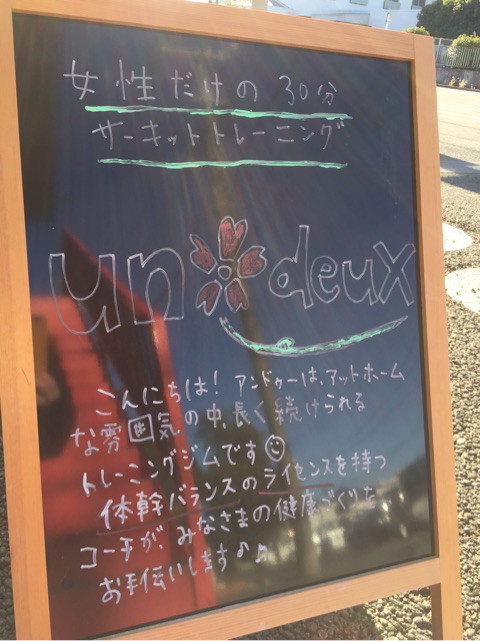 女性だけの 30分
サーキットトレーニング
un deux
こんにちは! アンドゥーは、アットホーム
な雰囲気の中、長く続けられる
トレーニングジムです☺
体幹バランスのライセンスを持つ
コーチが、みなさまの健康づくりを
お手伝いします♪♬